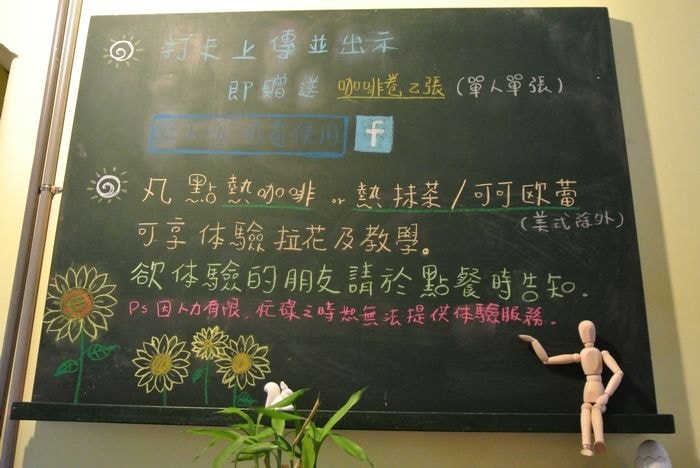 打卡上傳並出示
即贈送 咖啡卷乙張(單人單張)
使用 f
凡點熱咖啡 or 熱抹茶/可可歐蕾
(美式除外)
可享体驗拉花及教學。
欲体驗的朋友請於點餐時告知.
Ps 因人力有限,忙碌之時恕無法提供体驗服務.